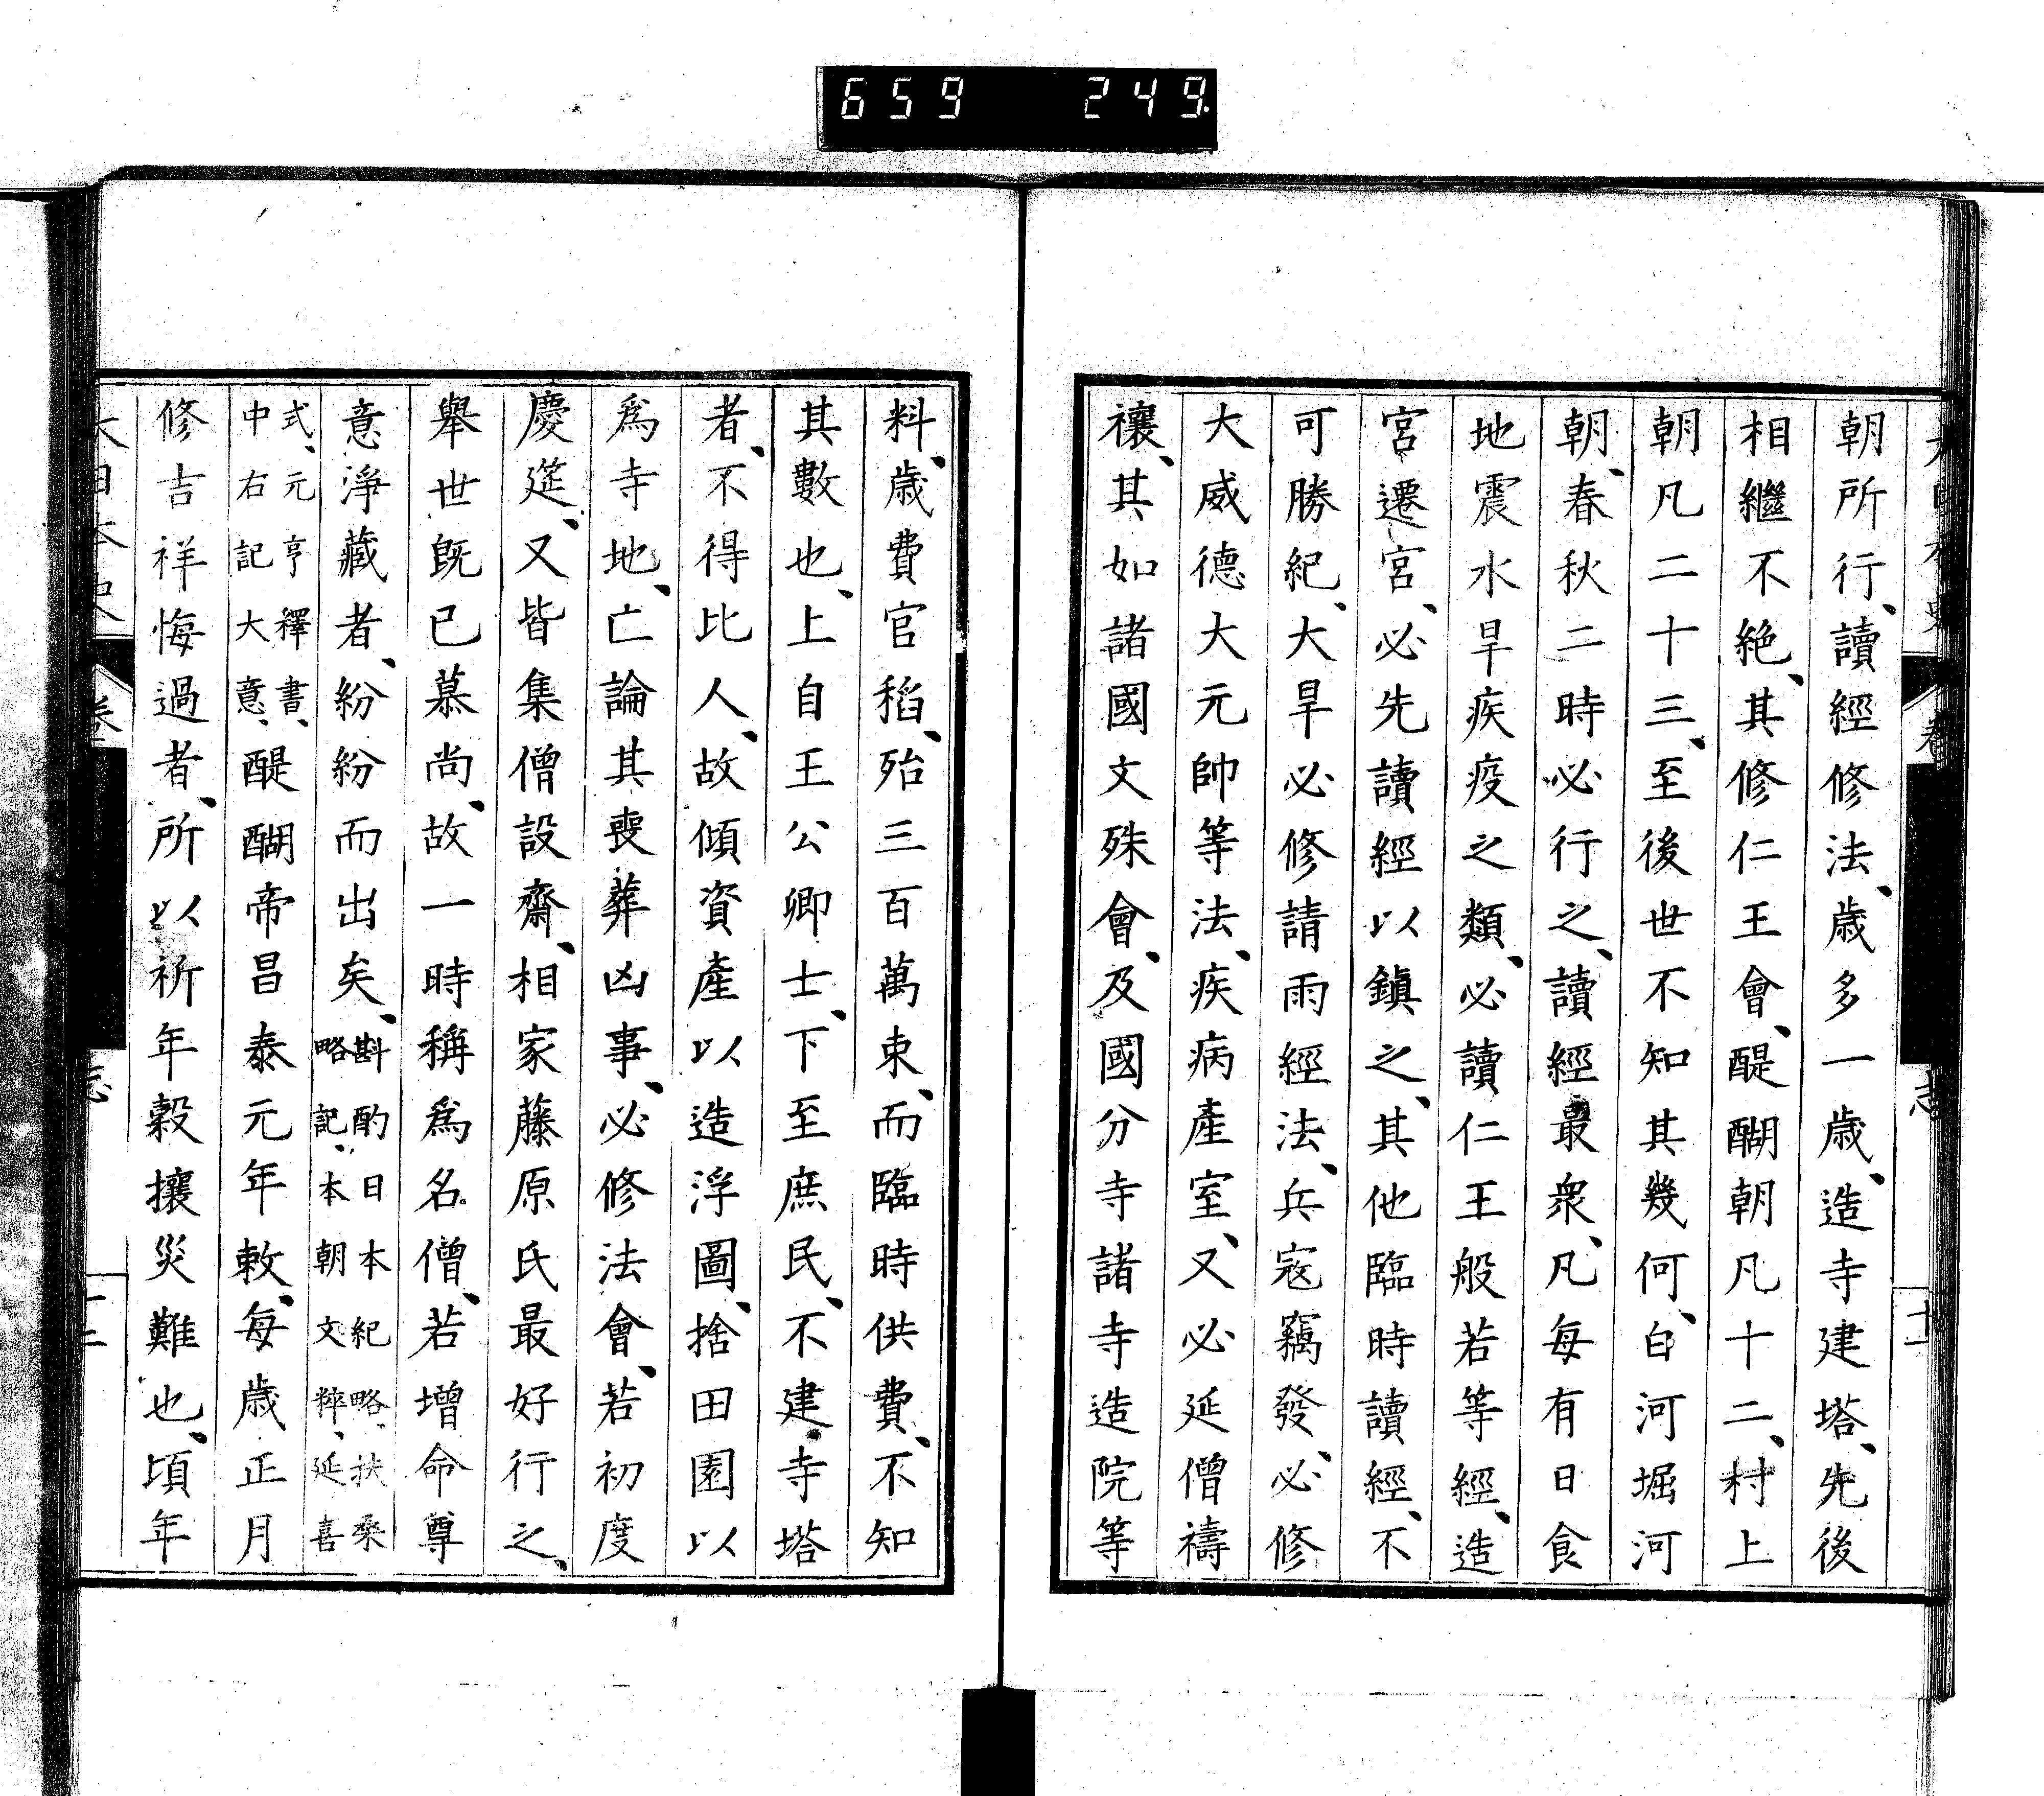 659 249.
朝所行、讀經修法、歳多一歳、造寺建塔、先後
相繼不絶、其修仁王會、醍醐朝凡十二、村上
朝凡二十三、至後世不知其幾何、白河堀河
朝、春秋二時必行之、讀經最衆、凡每有日食
地震水旱疾疫之類、必讀仁王般若等經、造
宮遷宮、必先讀經以鎭之、其他臨時讀經、不
可勝紀、大旱必修請雨經法、兵寇竊發、必修
大威德大元帥等法、疾病產室、又必延僧禱
禳、其如諸國文殊會、及國分寺諸寺造院等
料、歳費官稻、殆三百萬束、而臨時供費、不知
其數也、上自王公卿士、下至庶民、不建寺塔
者、不得比人、故傾資產以造浮圖、捨田園以
爲寺地、亡論其喪葬凶事、必修法會、若初度
慶筵、又皆集僧設齋、相家藤原氏最好行之、
舉世既已慕尚、故一時稱爲名僧、若增命尊
意淨藏者、紛紛而出矣、斟酌日本紀略、扶桑
略記、本朝文粹、延喜
式、元亨釋書、
中右記大意、醍醐帝昌泰元年敕、每歳正月
修吉祥悔過者、所以祈年穀攘災難也、頃年